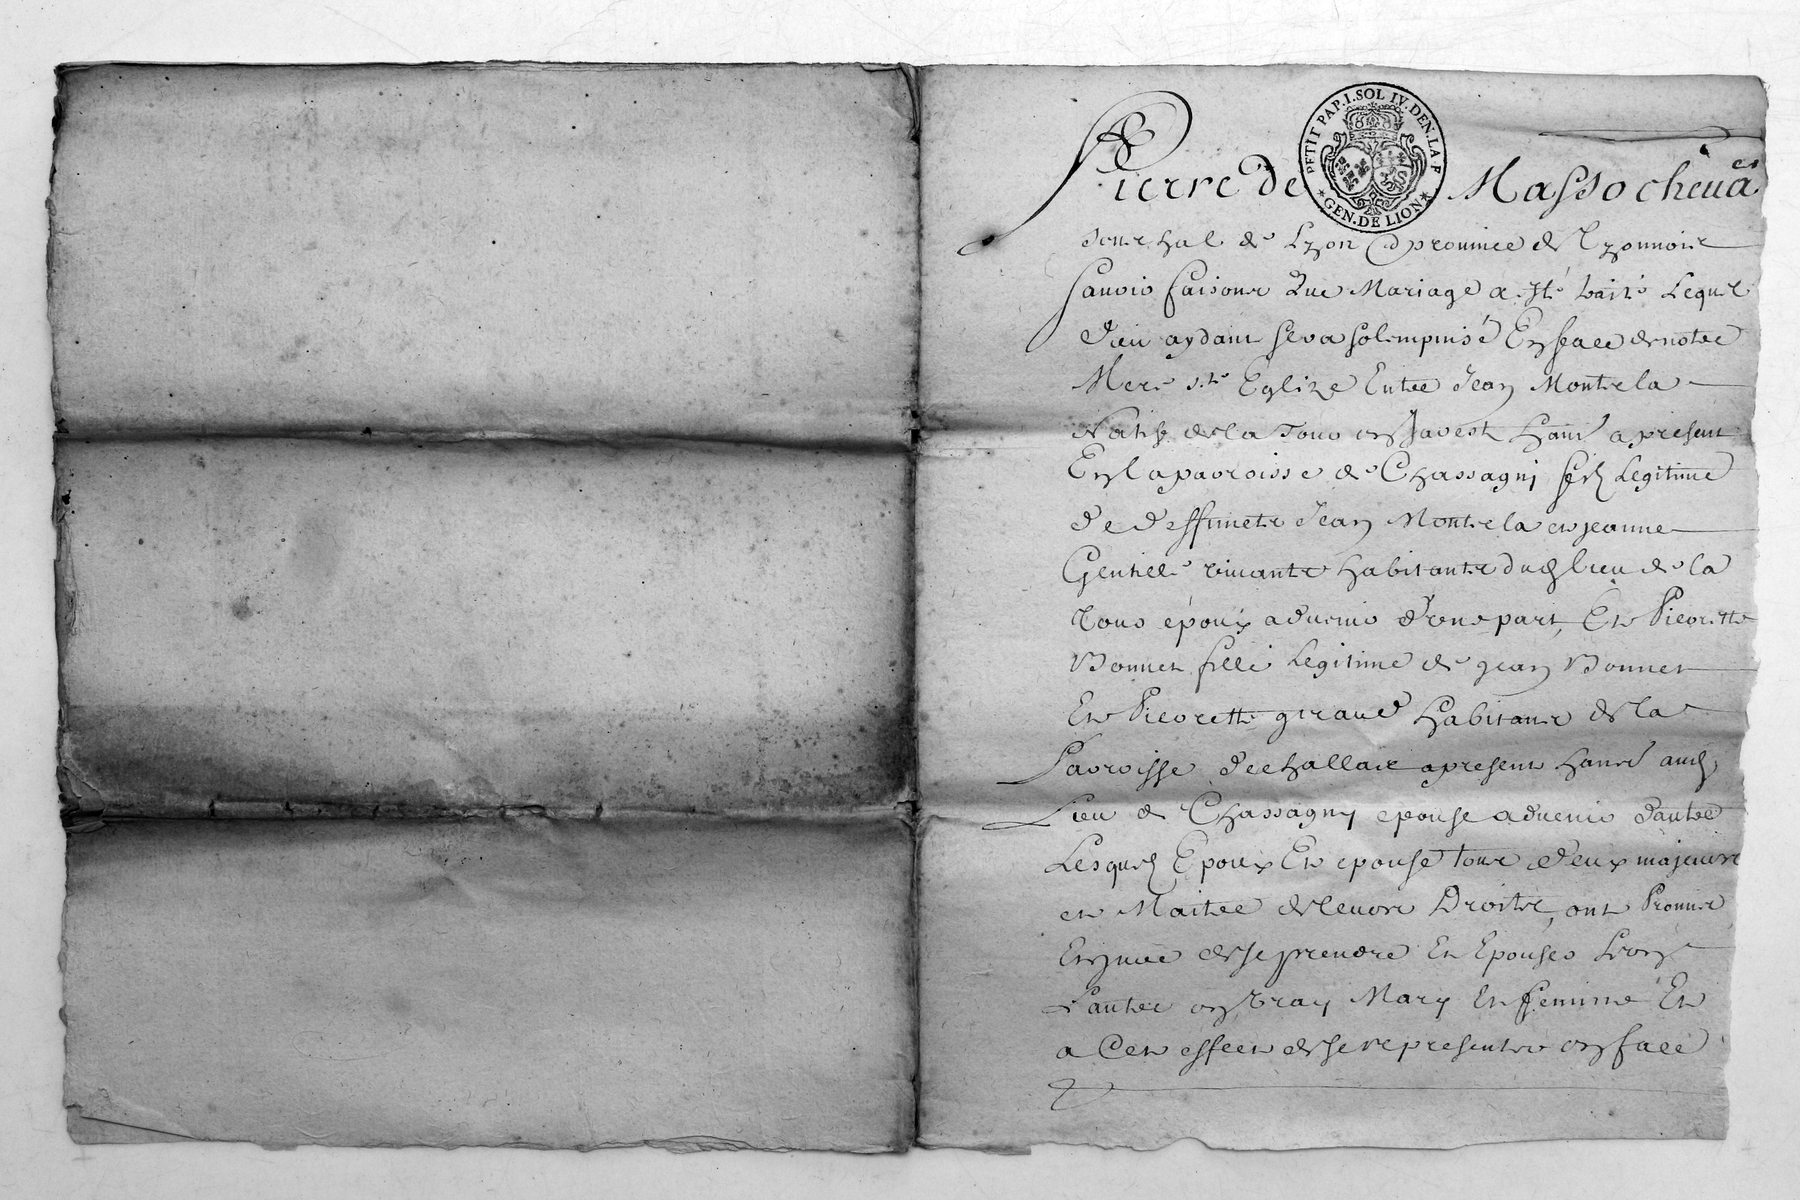 PETIT PAP. I. SOL IV. DEN. LA F
GEN. DE LION
Pierre de Masso chevā er
Senechal de Lyon & province de Lyonnois
Scavoir faisons Que Mariage a Ete traité Lequel
dieu aydant sera solempnisé En face de notre
Mere ste Eglize Entre Jean Montela
Natif de la Tour en Javest habt a present
En la parroisse de Chassagni fils Legitime
de deffunctz Jean Montela et jeanne
Gentille vivante habitante dud lieu de la
Tour epoux advenir d'une part, Et Pierrette
Bonnet fille Legitime de jean Bonnet
Et Pierrette giraud habitans de la
Parroisse de challaie a present habte aud
Lieu de Chassagny epouse advenir d'autre
Lesquels Epoux Et epouse tous deux majeurs
et Maitre de leurs Droits, ont Promis
Et de se prendre Et Epouser L'un
L'autre en vray Mary Et femme Et
a Cet effect de se representer en face